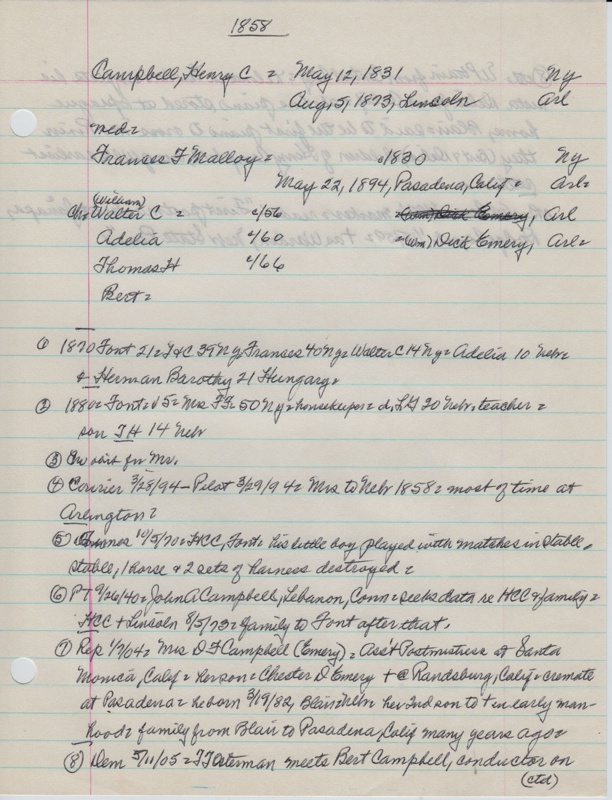 1858
Campbell, Henry C = May 12, 1831 Ny
Aug, 5, 1873, Lincoln Arl
med=
Frances F Malloy = c1830 Ny
May 22, 1894, Pasadena, Calif = Arl=
(William)
Ch= Walter C = c/56 Arl
Adelia c/60 =(Wm) Dick Emery, Arl=
Thomas H c/66
Bert=
① 1870 Font 21= H C 39 Ny= Frances 40 Ny= Walter C 14 Ny= Adelia 10 Nebr=
& Herman Barothy 21 Hungary=
② 1880= Font= Mrs FF= 50 Ny= housekeeper= d, 20 Nebr, teacher=
son TH 14 Nebr
③ for Mr.
④ Courier 3/28/94 – Pilot 3/29/94= Mrs to Nebr 1858= most of time at
Arlington=
⑤ 10/5/70= HCC, Font= his little boy played with matches in stable,
stable, 1 horse & 2 sets of harness destroyed =
⑥ PT 9/26/40= John A Campbell, Lebanon, Conn= seeks data re HCC & family=
HCC + Lincoln 8/5/73= family to Font after that.
⑦ Rep 1/7/04= Mrs D F Campbell (Emery)= Ass't Postmistress at Santa
Monica, Calif= her son= Chester D Emery + @ Randsburg, Calif= cremate
at Pasadena= he born 3/19/82, Blair= Nebr= her 2nd son to + in early man-
hood= family from Blair to Pasadena, Calif many years ago=
⑧ Dem 5/11/05= Osterman meets Bert Campbell, conductor on
(ctd)